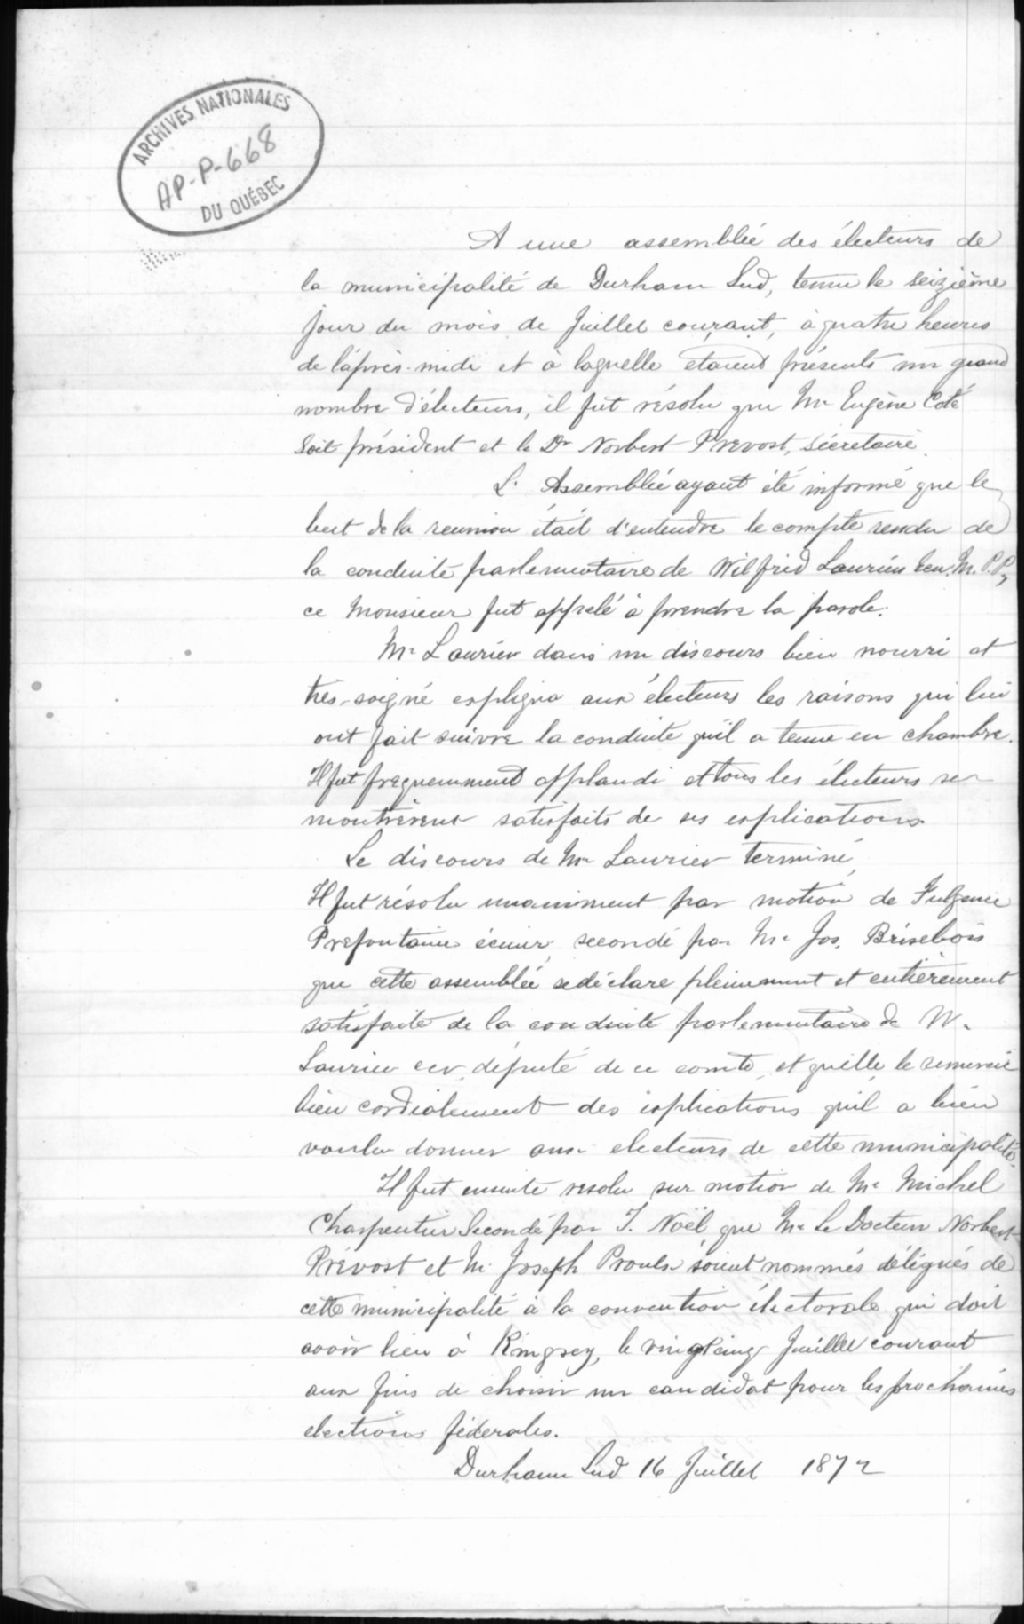 ARCHIVES NATIONALES
AP-P-668
DU QUÉBEC
A une assemblée des électeurs de
la municipalité de Durham Sud, tenue le seizième
jour du mois de Juillet courant, à quatre heures
de l'après-midi et à laquelle étaient présents un grand
nombre d'électeurs, il fut résolu que Mr Eugène Coté
soit président et le Dr Norbert Prevost, Secretaire.
L'Assemblée ayant été informé que le
but de la reunion était d'entendre le compte rendu de
la conduite parlementaire de Wilfrid Laurier Ecr. M.P.P,
ce Monsieur fut appelé à prendre la parole.
Mr Laurier dans un discours bien nourri et
très-soigné expliqua aux électeurs les raisons qui lui
ont fait suivre la conduite qu'il a tenue en chambre.
Il fut frequemment applaudi et tous les électeurs se
montrèrent satisfaits de ses explications.
Le discours de Mr Laurier terminé,
Il fut résolu unaniment par motion de Fulgence
Prefontaine écuier, secondé par Mr Jos. Brisebois
que cette assemblée se déclare pleinement et entièrement
satisfaite de la conduite parlementaire de W.
Laurier ecr, député de ce comté, et qu'elle le remercie
bien cordialement des explications qu'il a bien
voulu donner aux electeurs de cette municipalité.
Il fut ensuite resolu sur motion de Mr Michel
Charpentier Secondé par T. Noël, que Mr Le Docteur Norbert
Prévost et M. Joseph Proulx soient nommés délégués de
cette municipalité à la convention électorale qui doit
avoir lieu à Kingsey, le vingt cinq Juillet courant
aux fins de choisir un candidat pour les prochaines
elections féderales.
Durham Sud 16 Juillet 1872